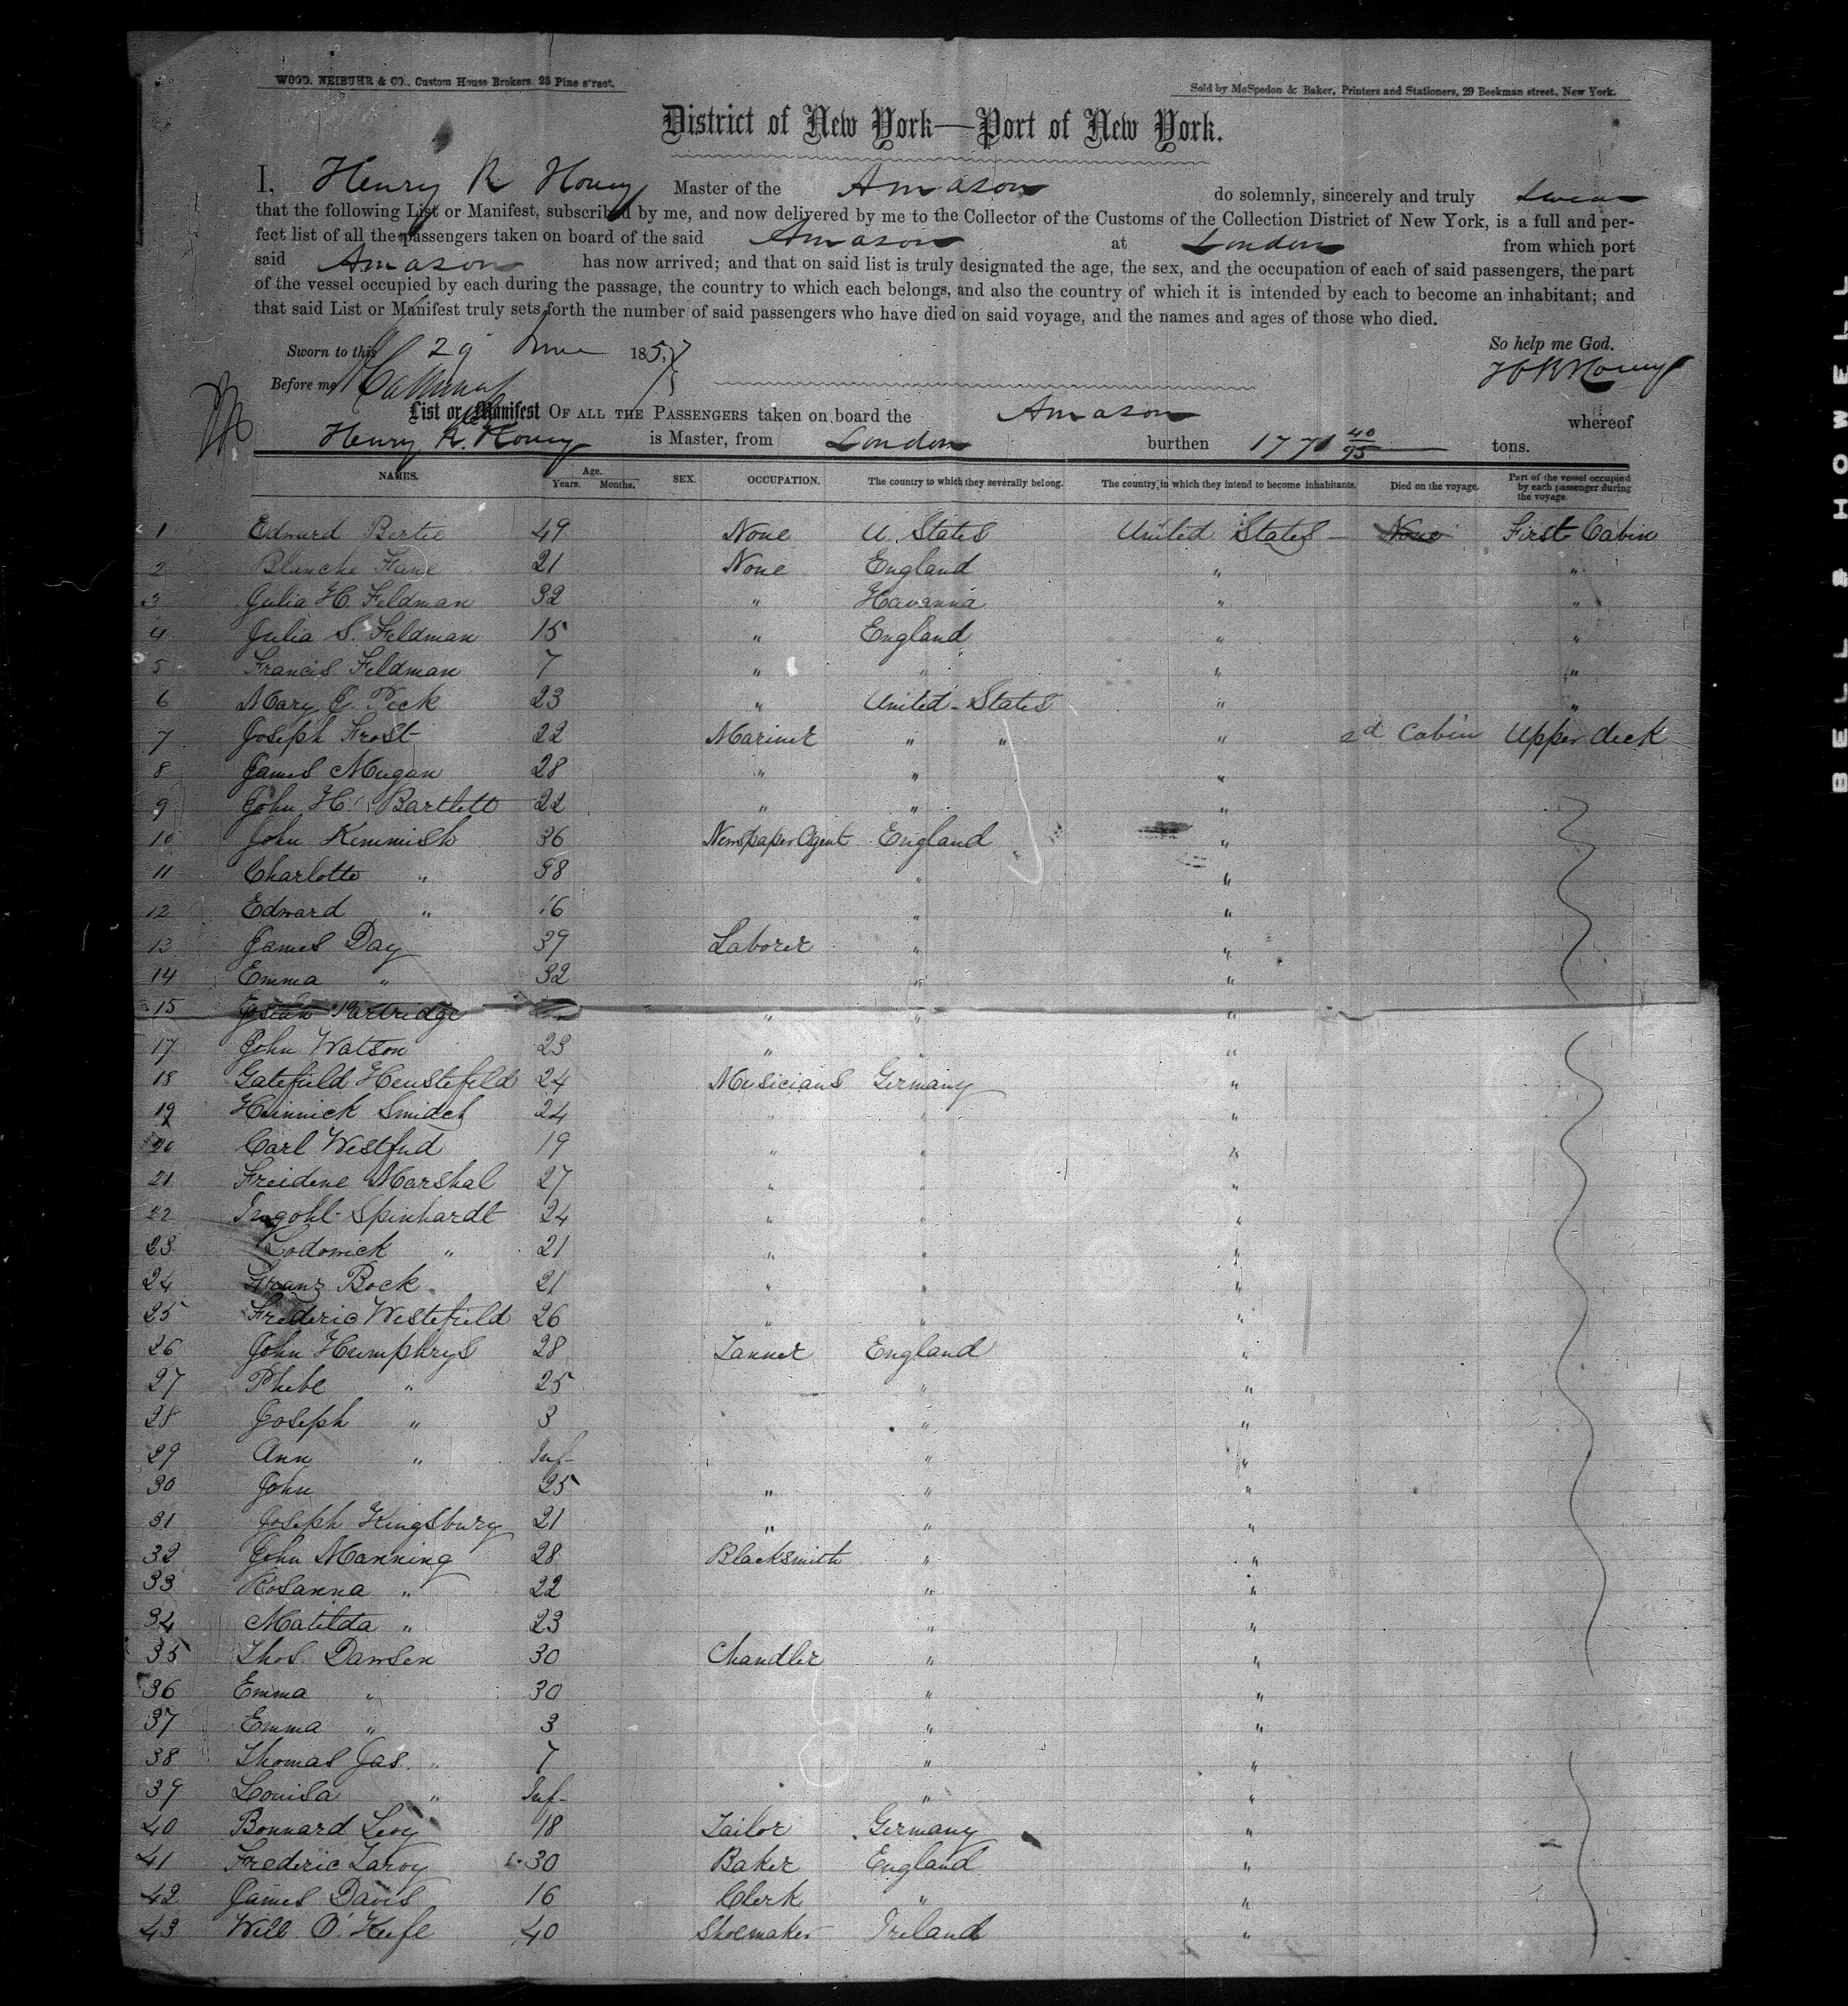 WOOD, NEIBUHR & CO., Custom House Brokers, 25 Pine street.
Sold by McSpedon & Baker, Printers and Stationers, 29 Beekman street, New York.
District of New York—Port of New York.
I, Henry R Hovey Master of the Amason do solemnly, sincerely and truly swear
that the following List or Manifest, subscribed by me, and now delivered by me to the Collector of the Customs of the Collection District of New York, is a full and per-
fect list of all the passengers taken on board of the said Amason at London from which port
said Amason has now arrived; and that on said list is truly designated the age, the sex, and the occupation of each of said passengers, the part
of the vessel occupied by each during the passage, the country to which each belongs, and also the country of which it is intended by each to become an inhabitant; and
that said List or Manifest truly sets forth the number of said passengers who have died on said voyage, and the names and ages of those who died.
Sworn to this 29 June 1857 So help me God.
Before me H R Hovey
List or Manifest OF ALL THE PASSENGERS taken on board the Amason whereof
Henry R. Hovey is Master, from London burthen 1771 40/95 tons.
NAMES. Age. Years. Months. SEX. OCCUPATION. The country to which they severally belong. The country in which they intend to become inhabitants. Died on the voyage. Part of the vessel occupied by each passenger during the voyage.
1 Edward Bertie 49 None U. States United States None First Cabin
2 Blanche 21 None England " "
3 Julia H. Feldman 32 " Havanna " "
4 Julia S. Feldman 15 " England " "
5 Francis Feldman 7 " " " "
6 Mary C. Peck 23 " United States " "
7 Joseph Frost 22 Mariner " " " 2d Cabin Upper deck
8 James Mugan 28 " " "
9 John H. Bartlett 22 " " "
10 John Kemmish 36 Newspaper Agent England "
11 Charlotte " 38 " "
12 Edward " 16 " "
13 James Day 39 Laborer " "
14 Emma " 32 " "
15 Partridge " " "
17 John Watson 23 " " "
18 Gatefield Heustefeld 24 Musicians Germany "
19 Heinnick Smidch 24 " " "
20 Carl Westfud 19 " " "
21 Freidene Marshal 27 " " "
22 Ingohl Spinhardt 24 " " "
23 Lodowick " 21 " " "
24 Franz Bock 21 " " "
25 Frederic Westefield 26 " " "
26 John Humphrys 28 Tanner England "
27 Phebe " 25 " "
28 Joseph " 3 " "
29 Ann " Inf- " "
30 John 25 " " "
31 Joseph Kingsbury 21 " " "
32 John Manning 28 Blacksmith " "
33 Rosanna " 22 " "
34 Matilda " 23 " "
35 Thos. Dawsen 30 Chandler " "
36 Emma " 30 " "
37 Emma " 3 " "
38 Thomas Jas. " 7 " "
39 Louisa " Inf- " "
40 Bonnard Levy 18 Tailor Germany "
41 Frederic Laroy 30 Baker England "
42 James Davis 16 Clerk " "
43 Will O'Keefe 40 Shoemaker Ireland "
BELL & HOWELL